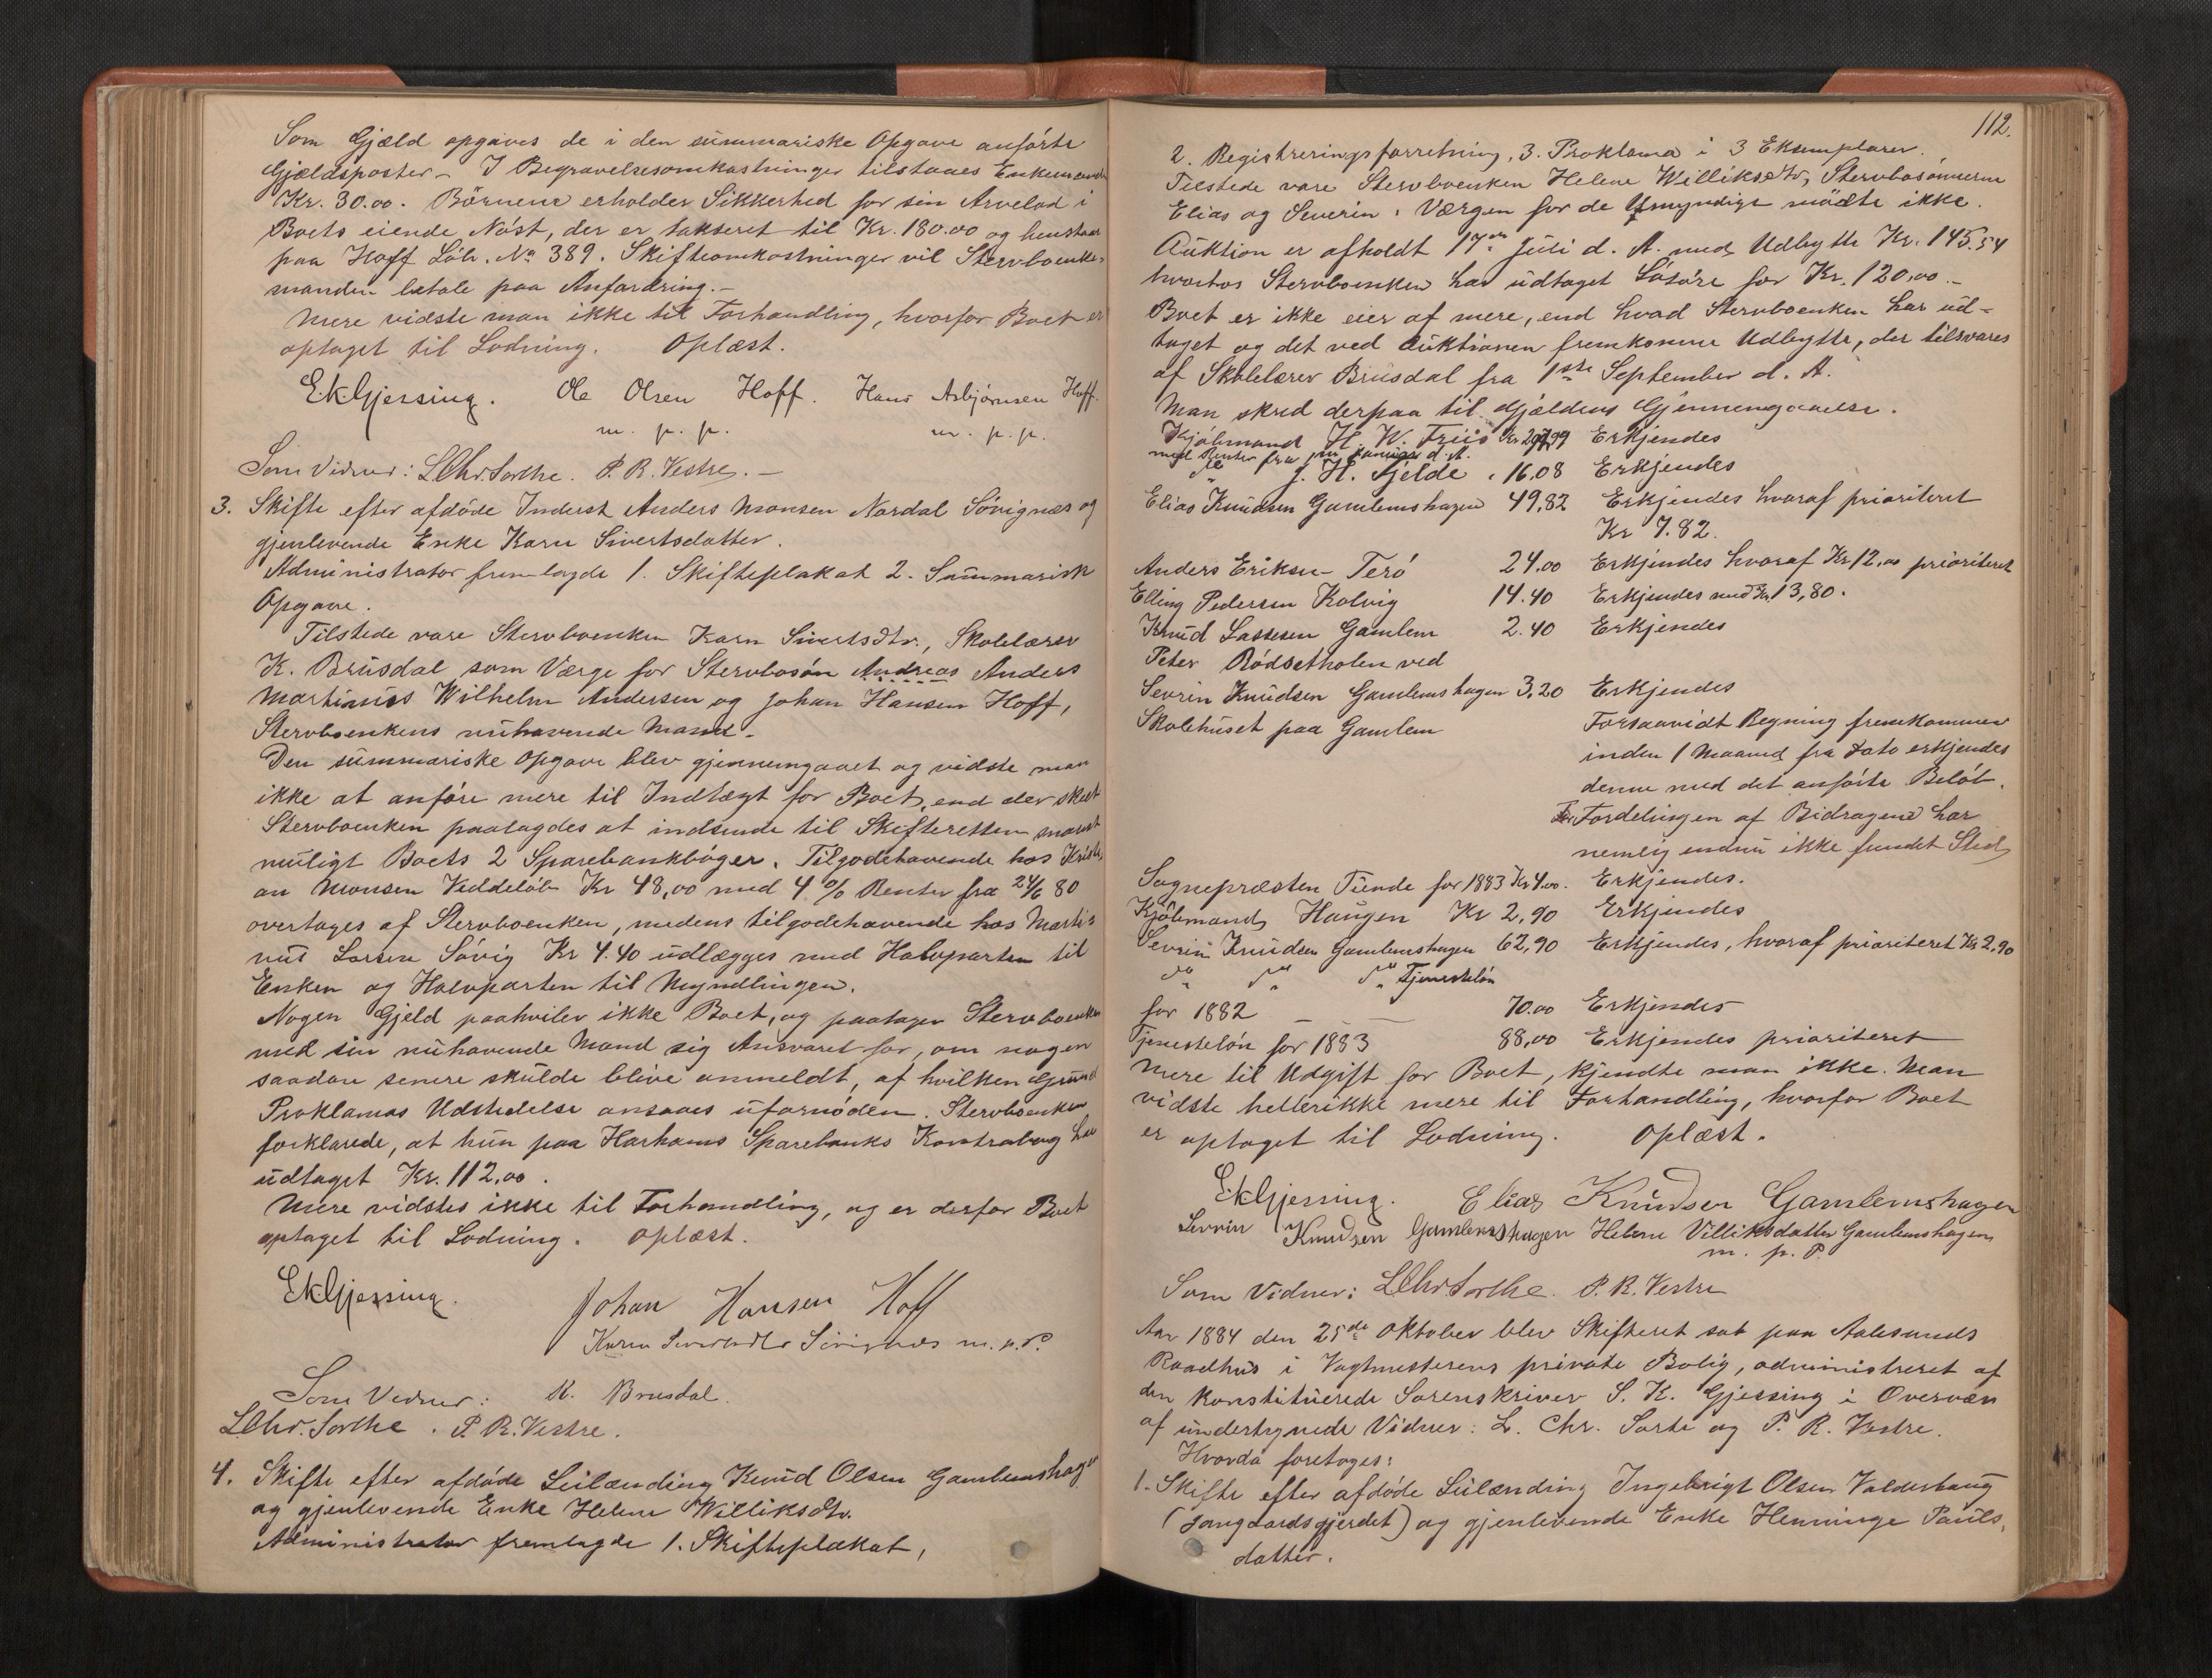 Som Gjæld opgaves de i den summariske Opgave anførte
Gjældsposter. I Begravelsesomkostninger tilstaaes Enkemanden
Kr. 30.00. Börnene erholder Sikkerhed for sin Arvelod i
Boets eiende Nöst, der er takseret til Kr. 180.00 og henstaar
paa Hoff Löb. No 389. Skifteomkostninger vil Stervboenke-
manden betale paa Anfordring.-
Mere vidste man ikke til Forhandling, hvorfor Boet er
optaget til Lodning. Oplæst.
EkGjessing. Ole Olsen Hoff. Hans Asbjørnsen Hoff.
m. p. p. m. p. p.
Som Vidner: LChr.Sorthe. P. R. Vestre.-
3. Skifte efter afdöde Inderst Anders Monsen Nordal Sövignæs og
gjenlevende Enke Karn Sivertsdatter.
Administrator fremlagde 1. Skifteplakat 2. Summarisk
Opgave.
Tilstede vare Stervboenken Karn Sivertsdtr., Skolelærer
K. Brusdal som Værge for Stervbosön Andreas Anders
Martinus Wilhelm Andersen og Johan Hansen Hoff,
Stervboenkens nuhavende Mand.
Den summariske Opgave blev gjennemgaaet og vidste man
ikke at anföre mere til Indtægt for Boet, end der skeet
Stervboenken paalagdes at indsende til Skifteretten snarest
muligt Boets 2 Sparebankböger. Tilgodehavende hos Kristi-
an Monsen Veddelöb Kr 48,00 med 4 % Renter fra 24/6 80
overtages af Stervboenken, medens tilgodehavende hos Marti-
nus Larsen Sövig Kr 4.40 udlægges med Halvparten til
Enken og Halvparten til Myndlingen.
Nogen Gjeld paahviler ikke Boet, og paatager Stervboenken
med sin nuhavende Mand sig Ansvaret for, om nogen
saadan senere skulde blive anmeldt, af hvilken Grund
Proklamas Udstedelse ansaaes ufornöden. Stervboenken
forklarede, at hun paa Harhams Sparebanks Kontrabog har
udtaget Kr. 112,00.
Mere vidstes ikke til Forhandling, og er derfor Boet
optaget til Lodning. Oplæst.
EkGjessing. Johan Hansen Hoff
Karn Sivertsdtr Sövignæs m. p. P.
Som Vidner: K. Brusdal.
LChr. Sorthe. P. R. Vestre.
4. Skifte efter afdöde Leilænding Knud Olsen Gamlemshagen
og gjenlevende Enke Helene Williksdtr.
Administrator fremlagde 1. Skifteplakat,
112.
2. Registreringsforretning, 3. Proklama i 3 Eksemplarer.
Tilstede vare Stervboenken Helene Williksdtr, Stervbosönnerne
Elias og Severin. Værgen for de Umyndige mödte ikke.
Auktion er afholdt 17de Juli d. A. med Udbytte Kr. 145.54
hvorhos Stervboenken har udtaget Lösöre for Kr. 120,00.-
Boet er ikke eier af mere, end hvad Stervboenken har ud-
taget og det ved Auktionen fremkomne Udbytte, der tilsvares
af Skolelærer Brusdal fra 1ste September d. A.
Man skred derpaa til Gjældens Gjennemgaaelse.
Kjöbmand H. W. Friis Kr 297,99 Erkjendes
med Renter fra 1ste Januar d. A.
do J. H. Fjelde " 16,08 Erkjendes
Elias Knudsen Gamlemshagen 49,82 Erkjendes hvoraf prioriteret
Kr 7.82.
Anders Eriksen Terö 24.00 Erkjendes hvoraf Kr 12,00 prioriteret
Elling Pedersen Kolvig 14.40 Erkjendes med Kr. 13,80.
Knud Lassesen Gamlem 2.40 Erkjendes
Peter Rödsetholen ved
Sevrin Knudsen Gamlemshagen 3,20 Erkjendes
Skolehuset paa Gamlem Forsaavidt Regning fremkommer
inden 1 Maaned fra Dato erkjendes
denne med det anförte Belöb.
Fordelingen af Bidragene har
nemlig endnu ikke fundet Sted
Sognepræsten Tiende for 1883 Kr 4.00. Erkjendes.
Kjöbmand Haugen Kr 2,90 Erkjendes
Sevrin Knudsen Gamlemshagen 62,90 Erkjendes, hvoraf prioriteret Kr 2,90
do do do Tjenestelön
for 1882 70.00 Erkjendes
Tjenestelön for 1883 88,00 Erkjendes prioriteret
Mere til Udgift for Boet, kjendte man ikke. Man
vidste hellerikke mere til Forhandling, hvorfor Boet
er optaget til Lodning. Oplæst.
EkGjessing. Elias Knudsen Gamlemshagen
Sevrin Knudsen Gamlemshagen Helene Villiksdatter Gamlemshagen
m. p. P.
Som Vidner: LChr.Sorthe. P. R. Vestre
Aar 1884 den 25de Oktober blev Skifteret sat paa Aalesunds
Raadhus i Vagtmesterens private Bolig, administreret af
den konstituerede Sorenskriver S. K. Gjessing i Overvær
af undertegnede Vidner: L. Chr. Sorte og P. R. Vestre.
Hvorda foretoges:
1. Skifte efter afdöde Leilænding Ingebrigt Olsen Valderhaug
(Jangaardsgjerdet) og gjenlevende Enke Henninge Pauls-
datter.